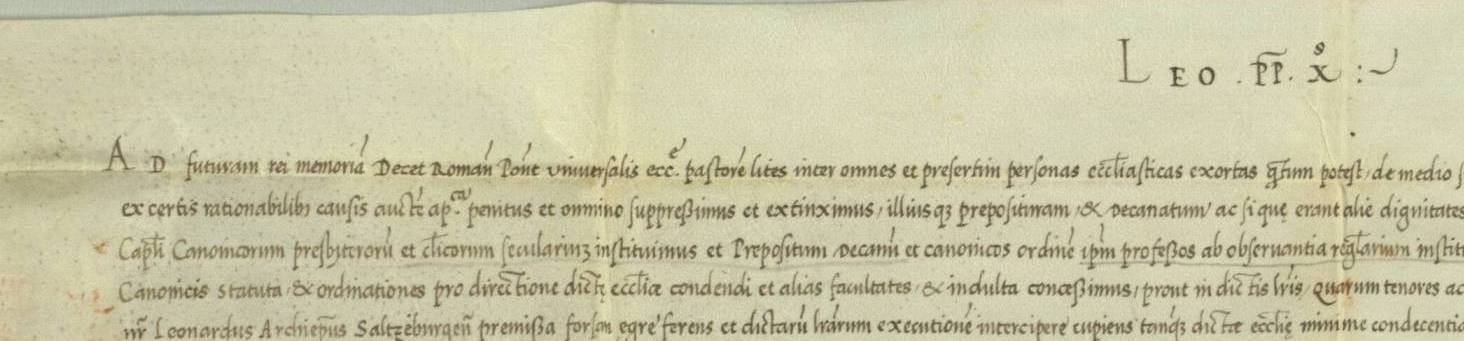 LEO . PP. X^s :
AD futuram rei memoriā Decet Romañ Pont̄ universalis ecc^e. pastorē lites inter omnes et presertim personas eccl̄iasticas exortas qᵃtum potest, de medio
ex certis rationabilib; causis auct̄e ap^ca. penitus et omnino suppreßimus et extinximus, illiusq; preposituram, & decanatum ac si quę erant alie dignitates
Capl̄i Canonicorum presbiterorū et cl̄icorum seculariuz instituimus et Prepositum Decanū et canonicos ordinē ip̄m profeßos ab observantia regl̄arium
Canonicis statuta, & ordinationes pro directione dictę eccl̄iæ condendi et alias facultates, & indulta conceßimus, prout in dictis lr̄is, quarum tenores ac
nr̄ Leonardus Archiep̄us Saltzeburgeñ premißa forsan egre ferens et dictarū lr̄arum executionē intercipere cupiens tanq; dictæ eccl̄ię minime